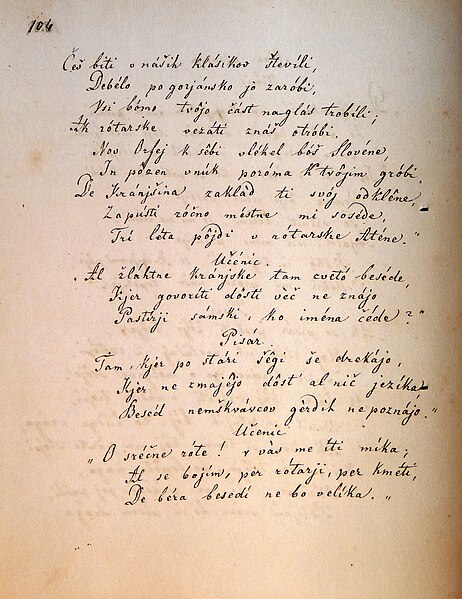 104
Češ biti v náših klásikov števíli,
Debélo po gorjánsko jo zaróbi,
Vsi bómo tvôjo část na glás trobíli;
Ak rótarske vezáti znáš otróbi,
Nov Orfej k sêbi vlékel bóš Slovéne,
In pôzen vnuk poróma k' tvôjim gróbi.
De Kránjšina zaklàd ti svój odklêne,
Zapústi róčno méstne mi soséde,
Trí léta pôjdi v rótarske Aténe."
Učénic.
Al žláhtne kránjske tam cvetó beséde,
Kjer govoríti dôsti vèč ne znájo
Pastírji samski, ko iména čéde?"
Pisár.
Tam, kjer po stári šêgi še drekájo,
Kjer ne zmajêjo dôst' al nič jezíka
Beséd nemškvávcov gerdih ne poznájo."
Učenic
„O sréčne róte! v vàs me íti míka;
Al se bojím, per rótarji, per kméti,
De béra besedí ne bo velíka."